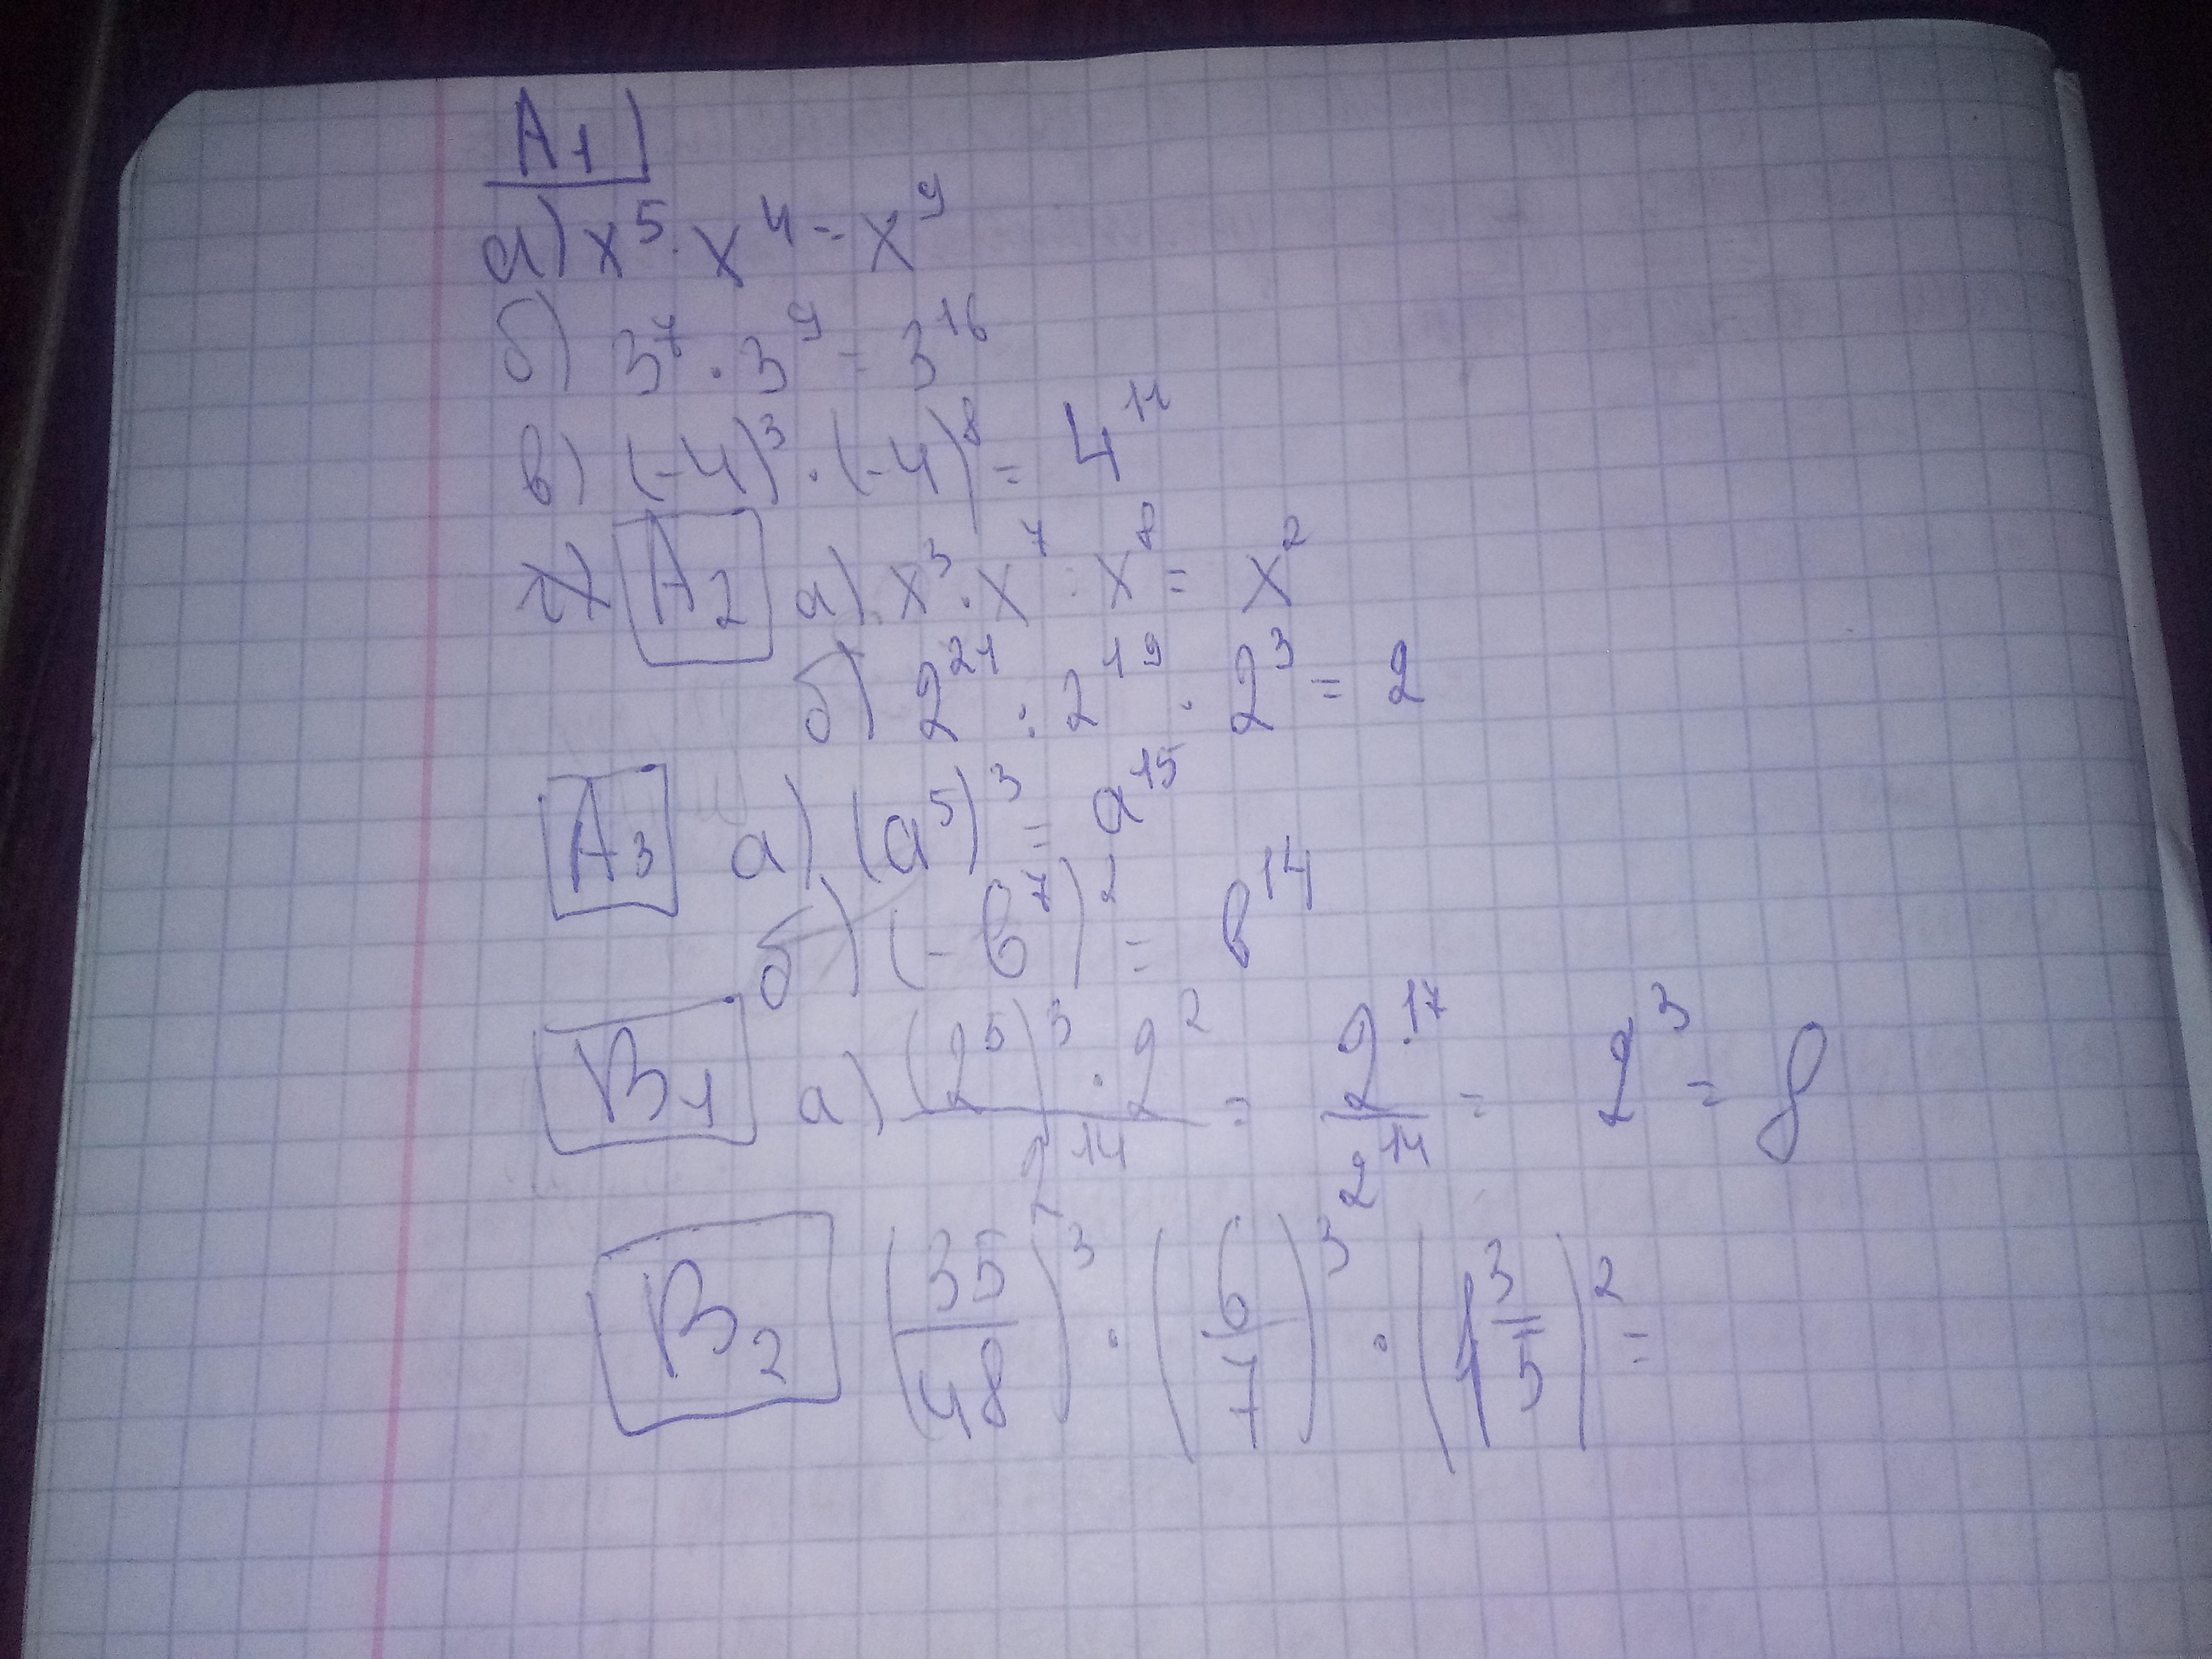 A₁
а) x⁵ · x⁴ = x⁹
б) 3⁷ · 3⁹ = 3¹⁶
в) (-4)³ · (-4)⁸ = 4¹¹
A₂ а) x³ · x⁷ : x⁸ = x²
б) 2²¹ : 2¹⁹ · 2³ = 2
A₃ а) (a⁵)³ = a¹⁵
б) (-в⁷)² = в¹⁴
B₁ а) ((2⁵)³ · 2²)/2¹⁴ = 2¹⁷/2¹⁴ = 2³ = 8
B₂ (35/48)³ · (6/7)³ · (1 3/5)² =